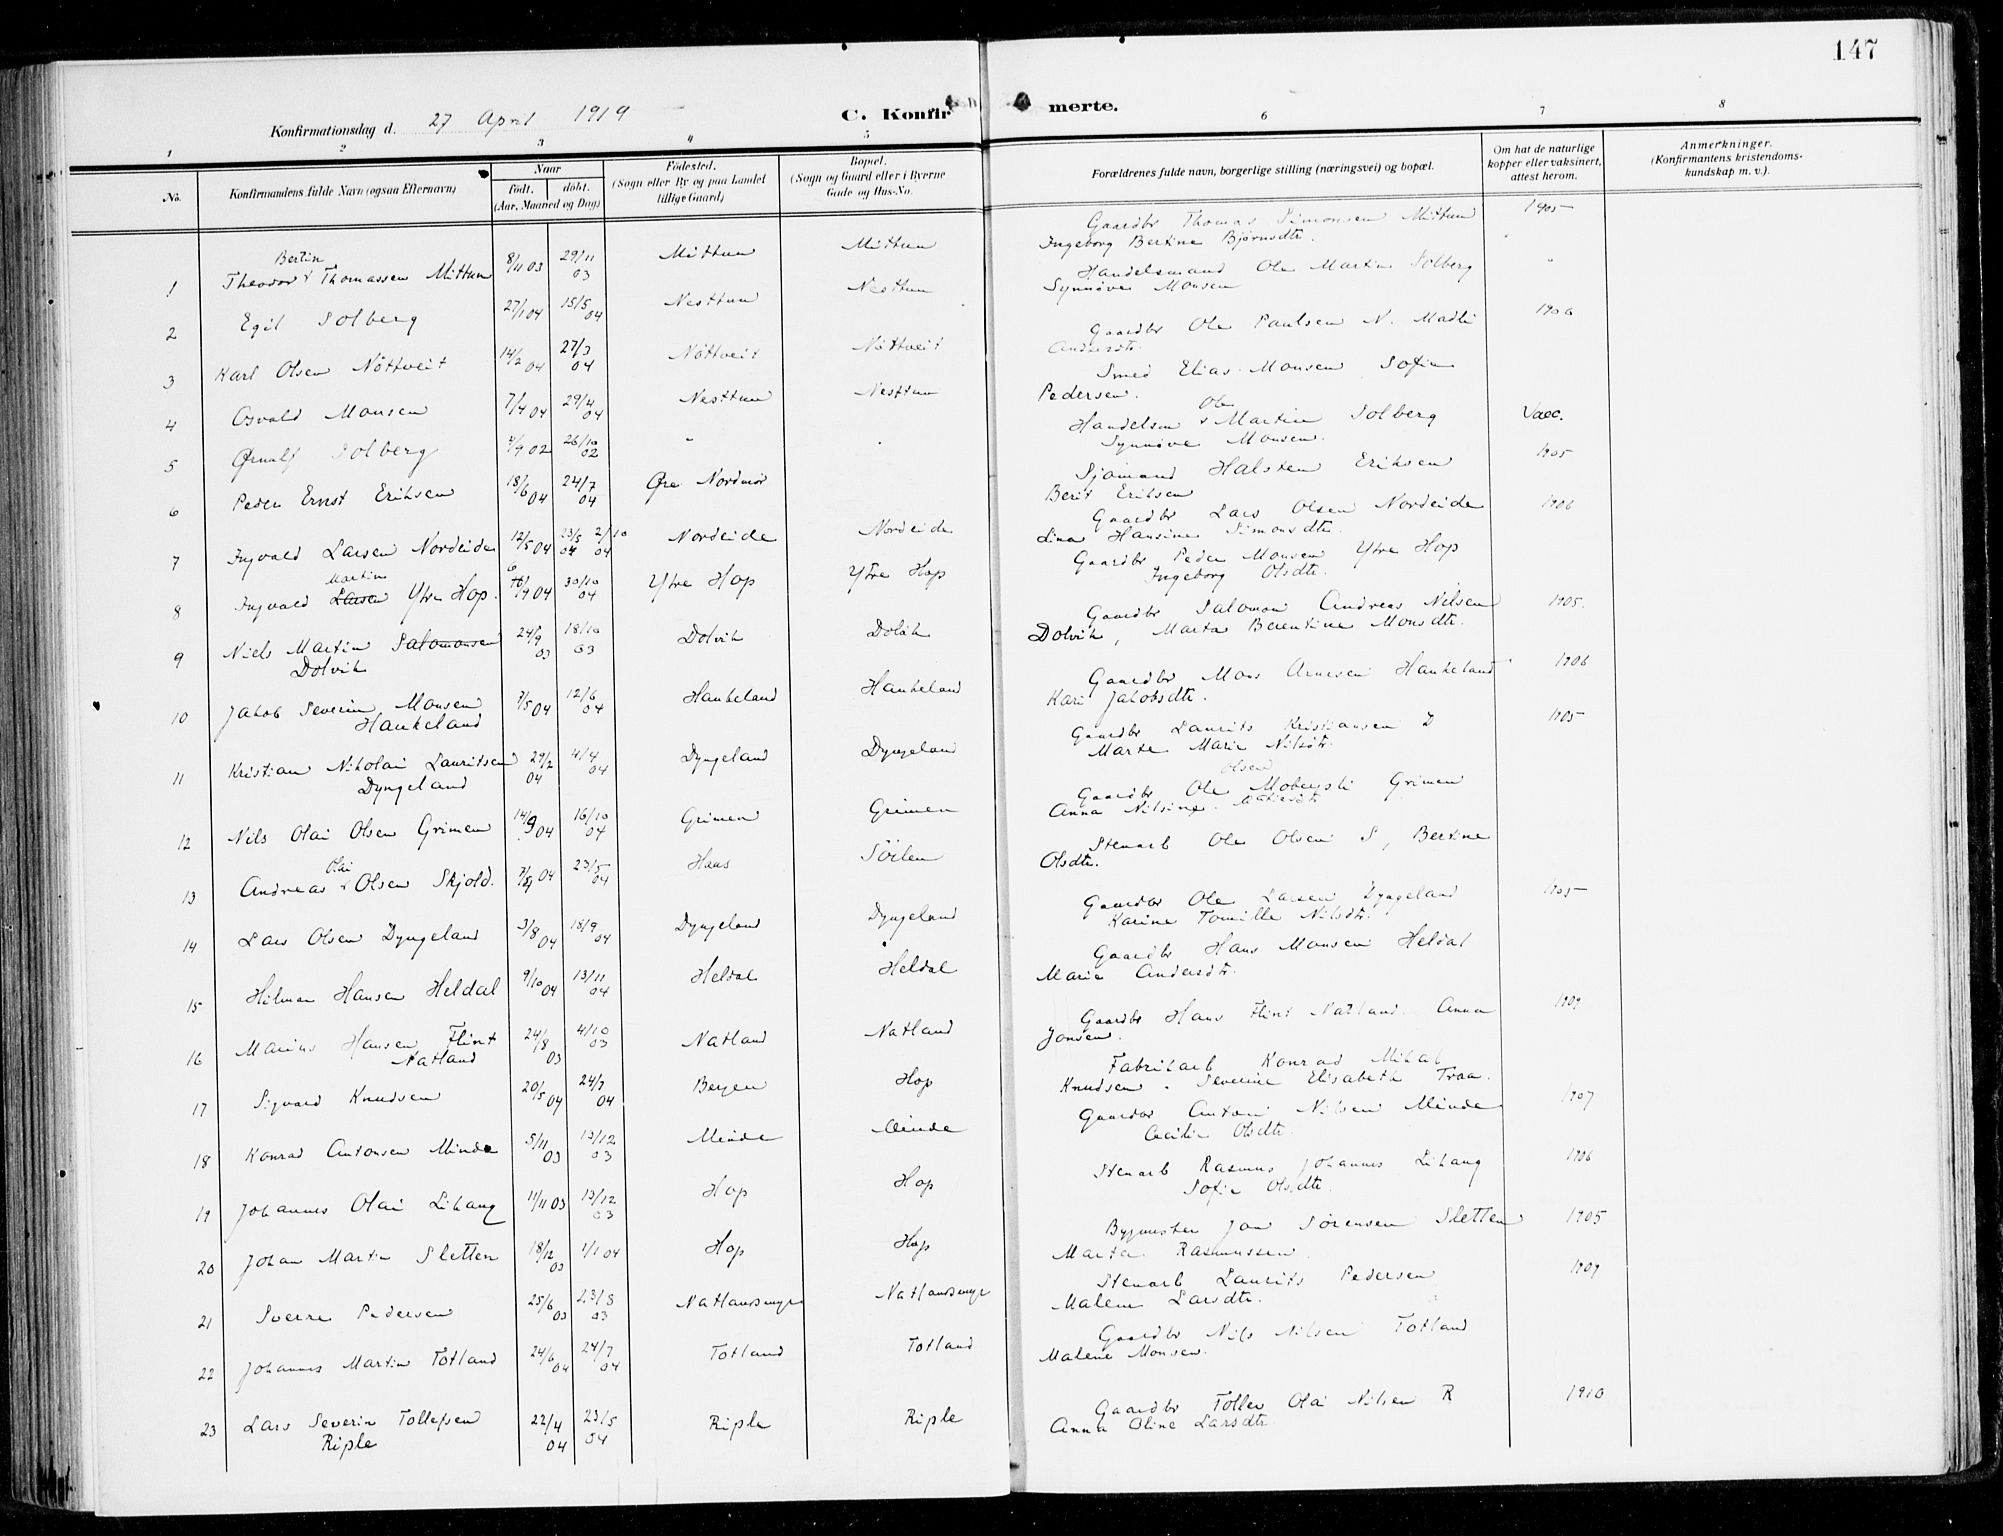 147
Konfirmationsdag d. 27 April 1919
C. Konfir merte.
1 2 3 4 5 6 7 8
No. Konfirmandens fulde Navn (ogsaa Efternavn) Naar födt. döbt. (Aar, Maaned og Dag) Födested. (Sogn eller By og paa Landet tillige Gaard) Bopæl. (Sogn og Gaard eller i Byerne Gade og Hus-No. Forældrenes fulde navn, borgerlige stilling (næringsvei) og bopæl. Om hat de naturlige kopper eller vaksinert, attest herom. Anmerkninger. (Konfirmantens kristendoms-kundskap m. v.).
Bertin
1 Theodor v Thomassen Mittun 8/11 03 29/11 03 Mittun Mittun Gaardbr Thomas Simonsen Mittun 1905
Ingeborg Bertine Bjørnsdtr.
2 Egil Solberg 27/1 04 15/5 04 Nesttun Nesttun Handelsmand Ole Martin Solberg "
Synnöve Monsen
3 Karl Olsen Nöttveit 14/2 04 27/3 04 Nöttveit Nöttveit Gaardbr Ole Paulsen N. Madli 1906
Andersdtr.
4 Osvald Monsen 7/4 04 29/4 04 Nesttun Nesttun Smed Elias Monsen Sofie
Pedersen.
5 Ørnulf Solberg 4/9 02 26/10 02 " " Handelsm v Ole Martin Solberg Vacc.
Synnöve Monsen.
6 Peder Ernst Eriksen 18/6 04 24/7 04 Øre Nordmör Sjömand Halsten Eriksen 1905
Berit Eriksen
7 Ingvald Larsen Nordeide 12/5 04 23/5 04 2/10 04 Nordeide Nordeide Gaardbr Lars Olsen Nordeide 1906
Lina Hansine Simonsdtr.
8 Ingvald Larsen Martin Ytre Hop. 6/9 04 30/10 04 Ytre Hop Ytre Hop Gaardbr Peder Monsen Ytre Hop
Ingeborg Olsdtr.
9 Niels Martin Salomonsen 24/9 03 18/10 03 Dolvik Dolvik Gaardbr Salomon Andreas Nilsen 1905.
Dolvik Dolvik, Marta Berentine Monsdtr.
10 Jakob Severin Monsen 7/5 04 12/6 04 Haukeland Haukeland Gaardbr Mons Arnesen Haukeland 1906
Haukeland Kari Jakobsdtr.
11 Kristian Nikolai Lauritsen 29/2 04 4/4 04 Dyngeland Dyngeland Gaardbr Laurits Kristiansen D 1905
Dyngeland Marte Marie Nilsdtr.
12 Nils Olai Olsen Grimen 14/9 04 16/10 04 Grimen Grimen Gaardbr Ole Olsen Grimen
Anna Nilsine
Olai
13 Andreas v Olsen Skjold. 04 23/5 04 Sörlen Stenarb Ole Olsen S, Bertine
Olsdtr.
14 Lars Olsen Dyngeland 3/8 04 18/9 04 Dyngeland Dyngeland Gaardbr Ole Larsen Dyngeland 1905
Karine Tomille Nilsdtr.
15 Hilmar Hansen Heldal 9/10 04 13/11 04 Heldal Heldal Gaardbr Hans Monsen Heldal
Marie Andersdtr.
16 Marius Hansen Flint 24/8 03 4/10 03 Natland Natland Gaardbr Hans Flint Natland. Anna 1909
Natland Jonsen.
17 Sigvard Knudsen 20/5 04 24/7 04 Bergen Hop Fabrikarb Konrad Mikal
Knudsen. Severine Elisabeth Traa.
18 Konrad Antonsen Minde 5/11 03 13/12 03 Minde Minde Gaardbr Anton Nilsen Minde 1907
Cecilie Olsdtr.
19 Johannes Olai Lihaug 11/11 03 13/12 03 Hop Hop Stenarb Rasmus Johannes Lihaug 1906
Sofie Olsdtr.
20 Johan Martin Sletten 18/12 03 1/1 04 Hop Hop Bygmester Jon Sörensen Sletten 1905
Marta Rasmussen.
21 Sverre Pedersen 25/6 03 23/8 03 Natlandsmyr Natlandsmyr Stenarb Laurits Pedersen 1909
Malene Larsdtr.
22 Johannes Martin Totland 24/6 04 24/7 04 Totland Totland Gaardbr Nils Nilsen Totland
Malene Monsen.
23 Lars Severin Tollefsen 22/4 04 23/5 04 Riple Riple Gaardbr Tollev Olai Nilsen R 1910
Riple Anna Oline Larsdtr.